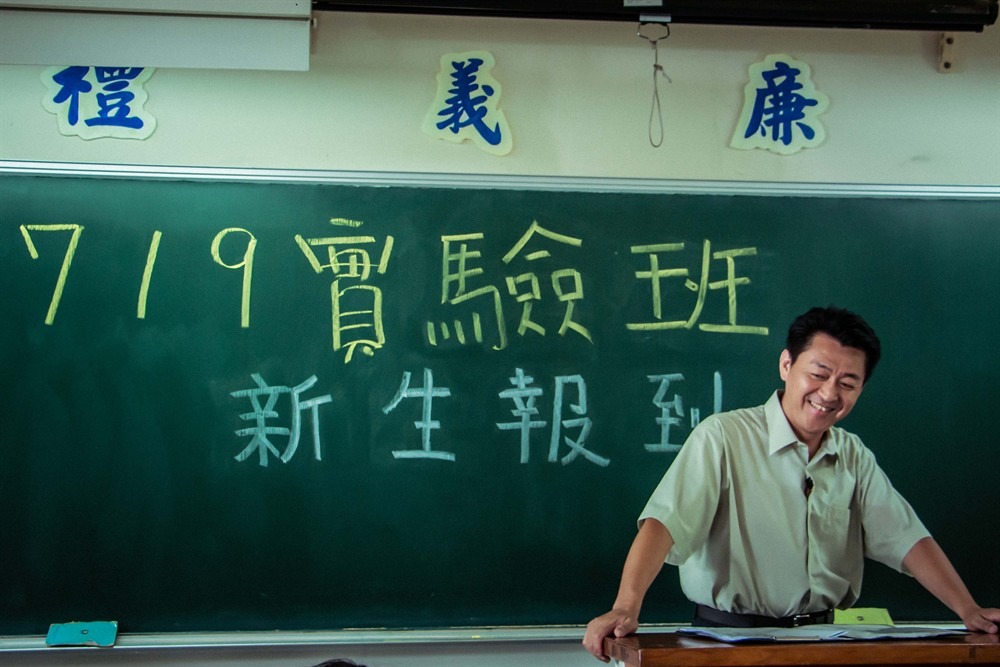 禮 義 廉
719實驗班
新生報到